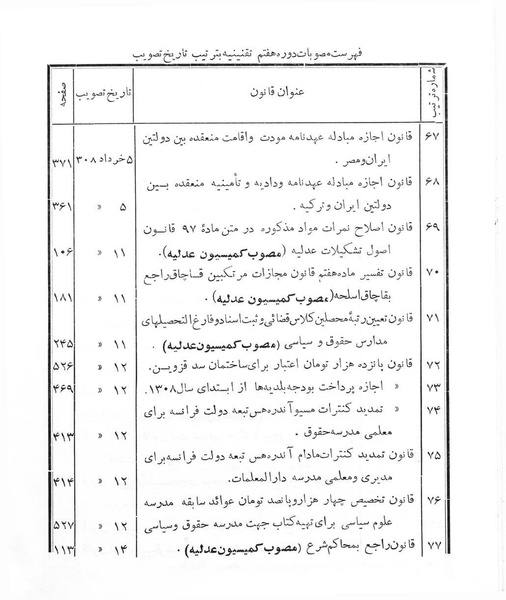 فهرست مصوبات دوره هفتم تقنینیه بترتیب تاریخ تصویب
شماره ترتیب عنوان قانون تاریخ تصویب صفحه
۶۷ قانون اجازه مبادله عهدنامه مودت واقامت منعقده بین دولتین
ایران ومصر . ۵ خرداد ۳۰۸ ۳۷۱
۶۸ قانون اجازه مبادله عهدنامه ودادیه و تأمینیه منعقده بین
دولتین ایران وترکیه . ۵ » ۳۶۱
۶۹ قانون اصلاح نمرات مواد مذکوره در متن مادهٔ ۹۷ قانون
اصول تشکیلات عدلیه (مصوب کمیسیون عدلیه). ۱۱ » ۱۰۶
۷۰ قانون تفسیر ماده هفتم قانون مجازات مرتکبین قاچاق راجع
بقاچاق اسلحه (مصوب کمیسیون عدلیه) . ۱۱ » ۱۸۱
۷۱ قانون تعیین رتبهٔ محصلین کلاس قضائی و ثبت اسناد و فارغ التحصیلهای
مدارس حقوق و سیاسی (مصوب کمیسیون عدلیه) . ۱۱ » ۲۴۵
۷۲ قانون پانزده هزار تومان اعتبار برای ساختمان سد قزوین. ۱۲ » ۵۲۶
۷۳ » اجازه پرداخت بودجه بلدیه ها از ابتدای سال ۱۳۰۸. ۱۲ » ۴۶۹
۷۴ » تمدید کنترات مسیو آندره هس تبعه دولت فرانسه برای
معلمی مدرسه حقوق . ۱۲ » ۴۱۳
۷۵ قانون تمدید کنترات مادام آندره هس تبعه دولت فرانسه برای
مدیری ومعلمی مدرسه دارالمعلمات. ۱۲ » ۴۱۴
۷۶ قانون تخصیص چهار هزار و پانصد تومان عوائد سابقه مدرسه
علوم سیاسی برای تهیه کتاب جهت مدرسه حقوق وسیاسی ۱۲ » ۵۲۷
۷۷ قانون راجع بمحاکم شرع (مصوب کمیسیون عدلیه) . ۱۴ » ۱۱۳